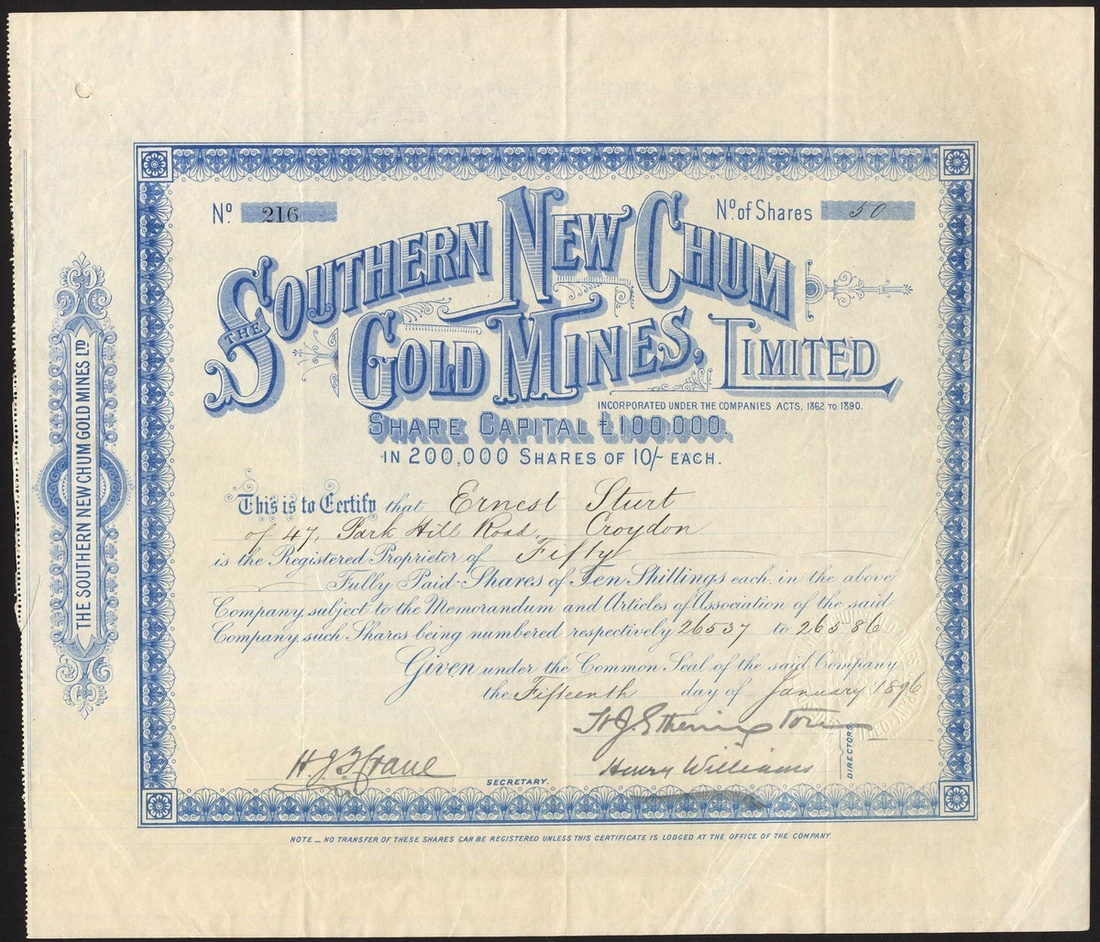 No 216
No. of Shares 50
THE SOUTHERN NEW CHUM
GOLD MINES, LIMITED
INCORPORATED UNDER THE COMPANIES ACTS, 1862 TO 1890.
SHARE CAPITAL £100,000,
IN 200,000 SHARES OF 10/- EACH.
This is to Certify that Ernest Sturt
of 47, Park Hill Road, Croydon
is the Registered Proprietor of Fifty
Fully Paid Shares of Ten Shillings each, in the above
Company, subject to the Memorandum and Articles of Association of the said
Company, such Shares being numbered respectively 26537 to 26586
Given under the Common Seal of the said Company
the Fifteenth day of January 1896
Henry Williams
DIRECTORS
SECRETARY.
NOTE _ NO TRANSFER OF THESE SHARES CAN BE REGISTERED UNLESS THIS CERTIFICATE IS LODGED AT THE OFFICE OF THE COMPANY.
THE SOUTHERN NEW CHUM GOLD MINES LTD